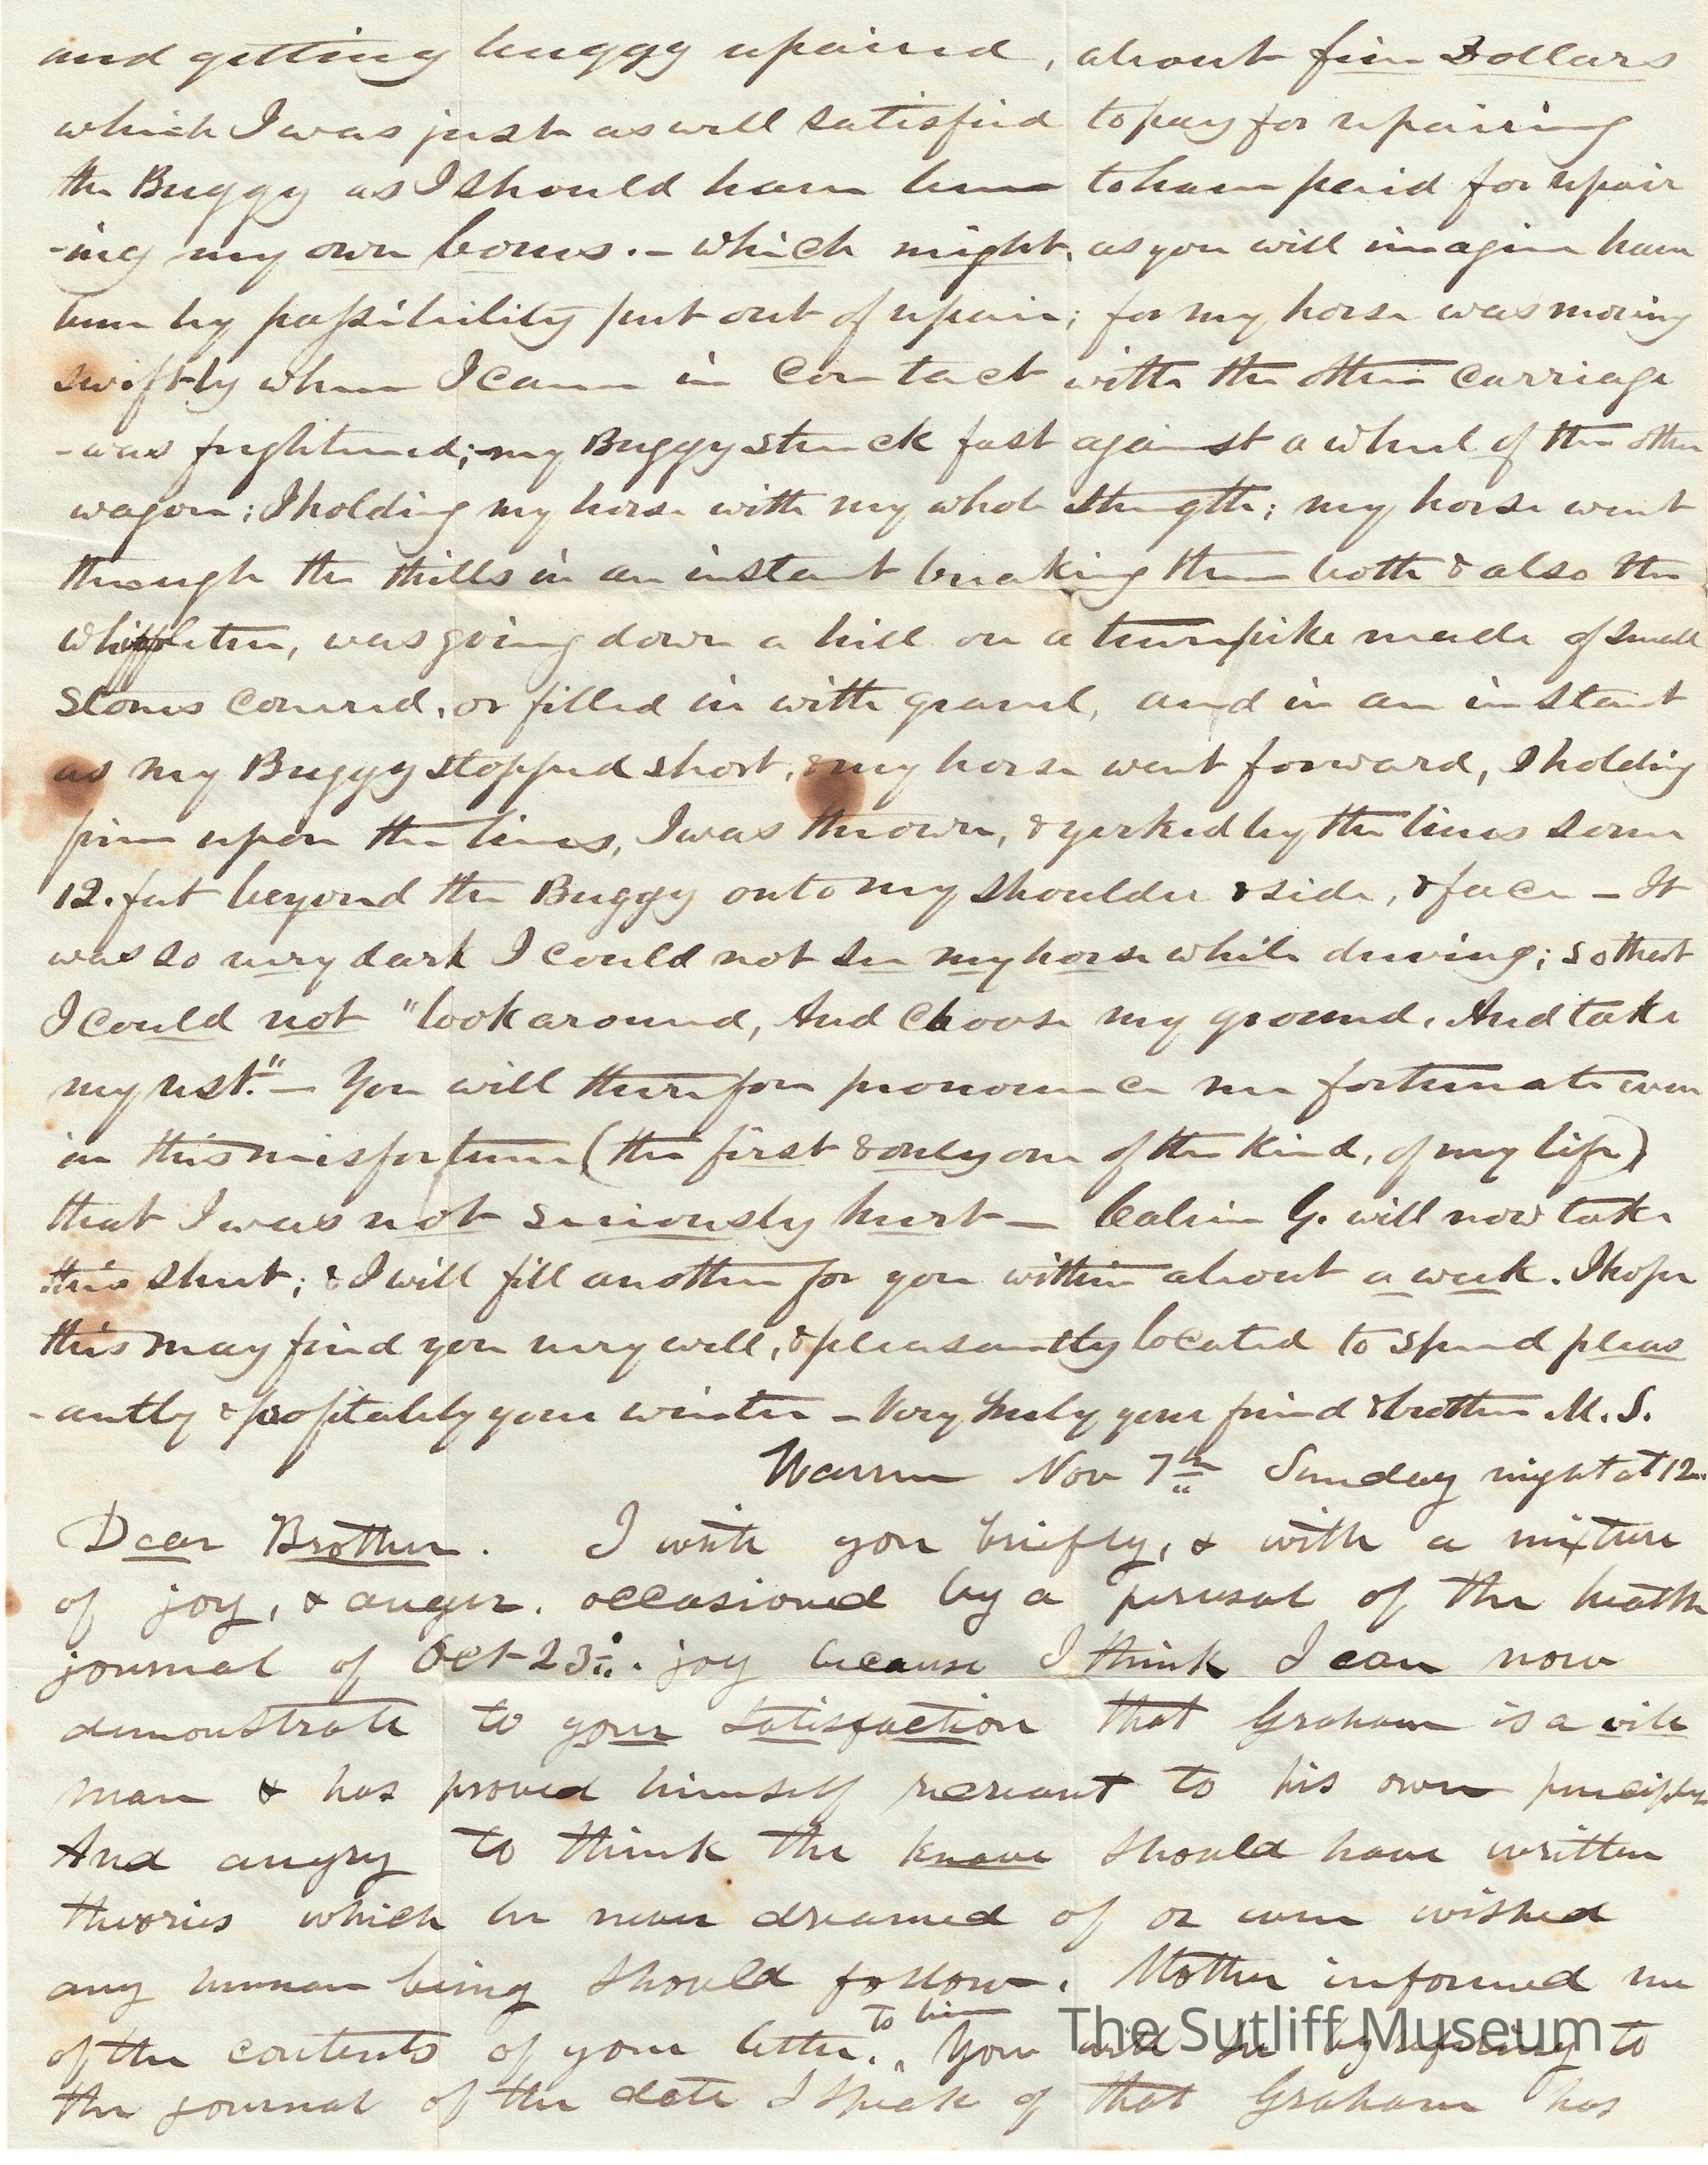 and getting buggy repaired, about five Dollars
which I was just as well satisfied to pay for repairing
the Buggy as I should have been to have paid for repair
-ing my own bones. - which might, as you will imagine have
been by possibility put out of repair; for my horse was moving
swiftly when I came in contact with the other carriage
- was frightened; my Buggy stuck fast against a wheel of the other
wagon; I holding my horse with my whole strength; my horse went
through the thills in an instant breaking them both & also the
whippletree, was going down a hill on a turnpike made of small
stones covered, or filled in with gravel, and in an instant
as my Buggy stopped short, & my horse went forward, I holding
firm upon the lines, I was thrown, & yerked by the lines some
12. feet beyond the Buggy onto my shoulder & side, & face - It
was so very dark I could not see my horse while driving; so that
I could not "look around, And choose my ground, And take
my rest." - You will therefore pronounce me fortunate even
in this misfortune (the first & only one of the kind, of my life)
that I was not seriously hurt - Calvin G. will now take
this sheet; & I will fill another for you within about a week. I hope
this may find you very well, & pleasantly located to spend pleas
-antly & profitably your winter - Very truly your friend & brother M. S.
Warren Nov 7th Sunday night at 12
Dear Brother. I write you briefly, & with a mixture
of joy, & anger. occasioned by a perusal of the health
journal of Oct 23d. joy because I think I can now
demonstrate to your satisfaction that Graham is a vile
man & has proved himself recreant to his own principles
And angry to think the knave should have written
theories which he never dreamed of or even wished
any human being should follow. Mother informed me
of the contents of your letter. to him You will see by refering to
the journal of the date I speak of that Graham has
The Sutliff Museum